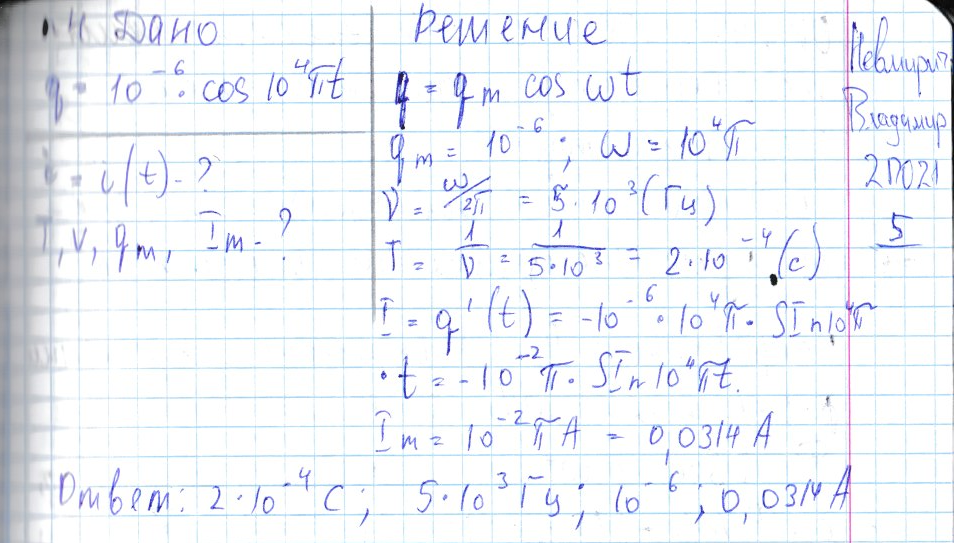 4. Дано
q = 10⁻⁶ · cos 10⁴πt
i = i(t) - ?
T, ν, qm, Im - ?
Решение
q = qm cos ωt
qm = 10⁻⁶ ; ω = 10⁴π
ν = ω/2π = 5·10³ (Гц)
T = 1/ν = 1/5·10³ = 2·10⁻⁴ (с)
I = q'(t) = -10⁻⁶ · 10⁴π · SIn10⁴π
· t = -10⁻²π · SIn10⁴πt.
Im = 10⁻²πA = 0,0314 A
Ответ: 2·10⁻⁴ С; 5·10³ Гц; 10⁻⁶; 0,0314 A
Владимир
2П021
5